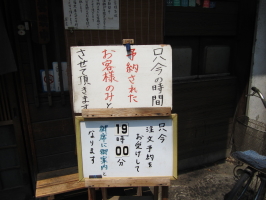 只今の時間
予納された
お客様のみと
させて頂きます
只今
注文予約を
お受けして
19時00分
御席に御案内と
なります